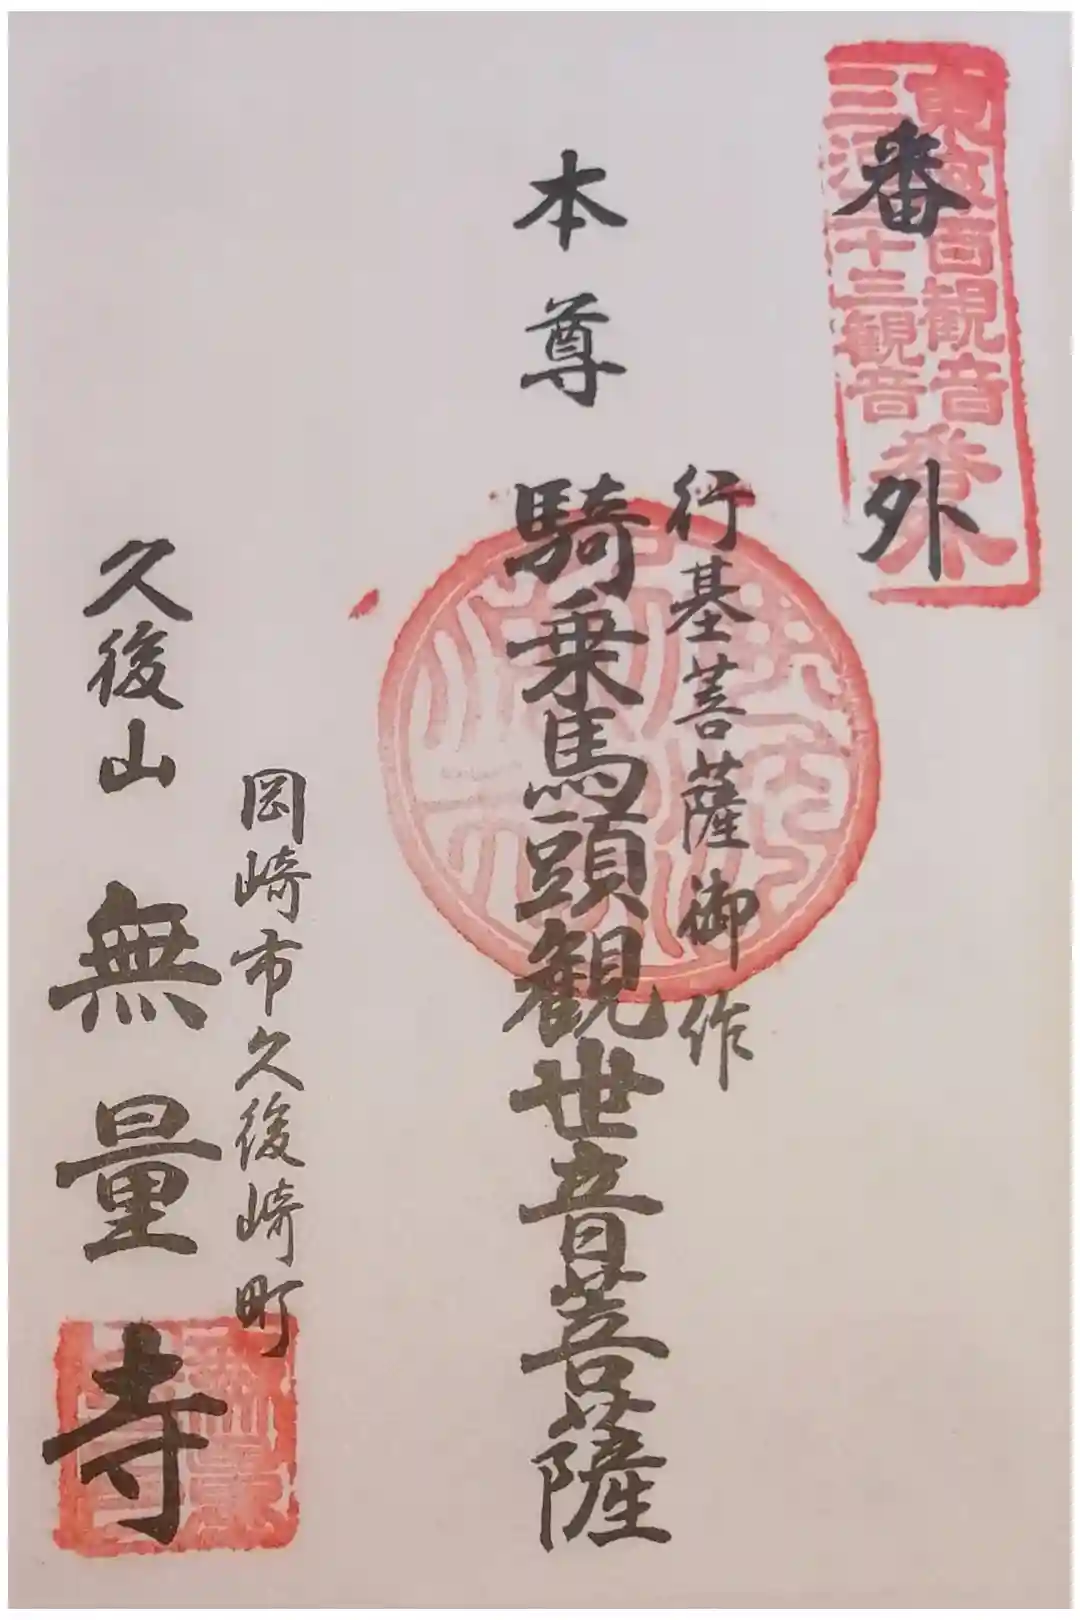 東海百観音
三河三十三観音
番外
番外
行基菩薩御作
本尊 騎乗馬頭観世音菩薩
岡崎市久後崎町
久後山 無量寺